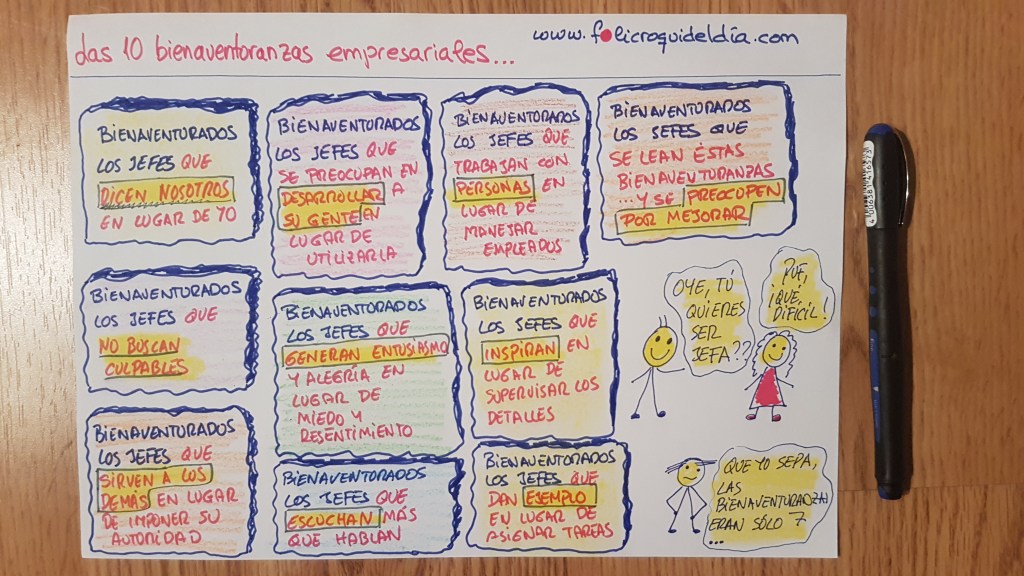 Las 10 bienaventuranzas empresariales...
www.folicroquideldía.com
BIENAVENTURADOS
LOS JEFES QUE
DICEN NOSOTROS
EN LUGAR DE YO
BIENAVENTURADOS
LOS JEFES QUE
SE PREOCUPAN EN
DESARROLLAR A
SU GENTE EN
LUGAR DE
UTILIZARLA
BIENAVENTURADOS
LOS JEFES QUE
TRABAJAN CON
PERSONAS EN
LUGAR DE
MANEJAR
EMPLEADOS
BIENAVENTURADOS
LOS JEFES QUE
SE LEAN ÉSTAS
BIENAVENTURANZAS
...Y SE PREOCUPEN
POR MEJORAR
BIENAVENTURADOS
LOS JEFES QUE
NO BUSCAN
CULPABLES
BIENAVENTURADOS
LOS JEFES QUE
GENERAN ENTUSIASMO
Y ALEGRÍA EN
LUGAR DE
MIEDO Y
RESENTIMIENTO
BIENAVENTURADOS
LOS JEFES QUE
INSPIRAN EN
LUGAR DE
SUPERVISAR LOS
DETALLES
OYE, TÚ
QUIERES
SER
JEFA??
PUF,
¡QUE
DIFÍCIL!
BIENAVENTURADOS
LOS JEFES QUE
SIRVEN A LOS
DEMÁS EN LUGAR
DE IMPONER SU
AUTORIDAD
BIENAVENTURADOS
LOS JEFES QUE
ESCUCHAN MÁS
QUE HABLAN
BIENAVENTURADOS
LOS JEFES QUE
DAN EJEMPLO
EN LUGAR DE
ASIGNAR TAREAS
QUE YO SEPA,
LAS
BIENAVENTURANZAS
ERAN SÓLO 7
...